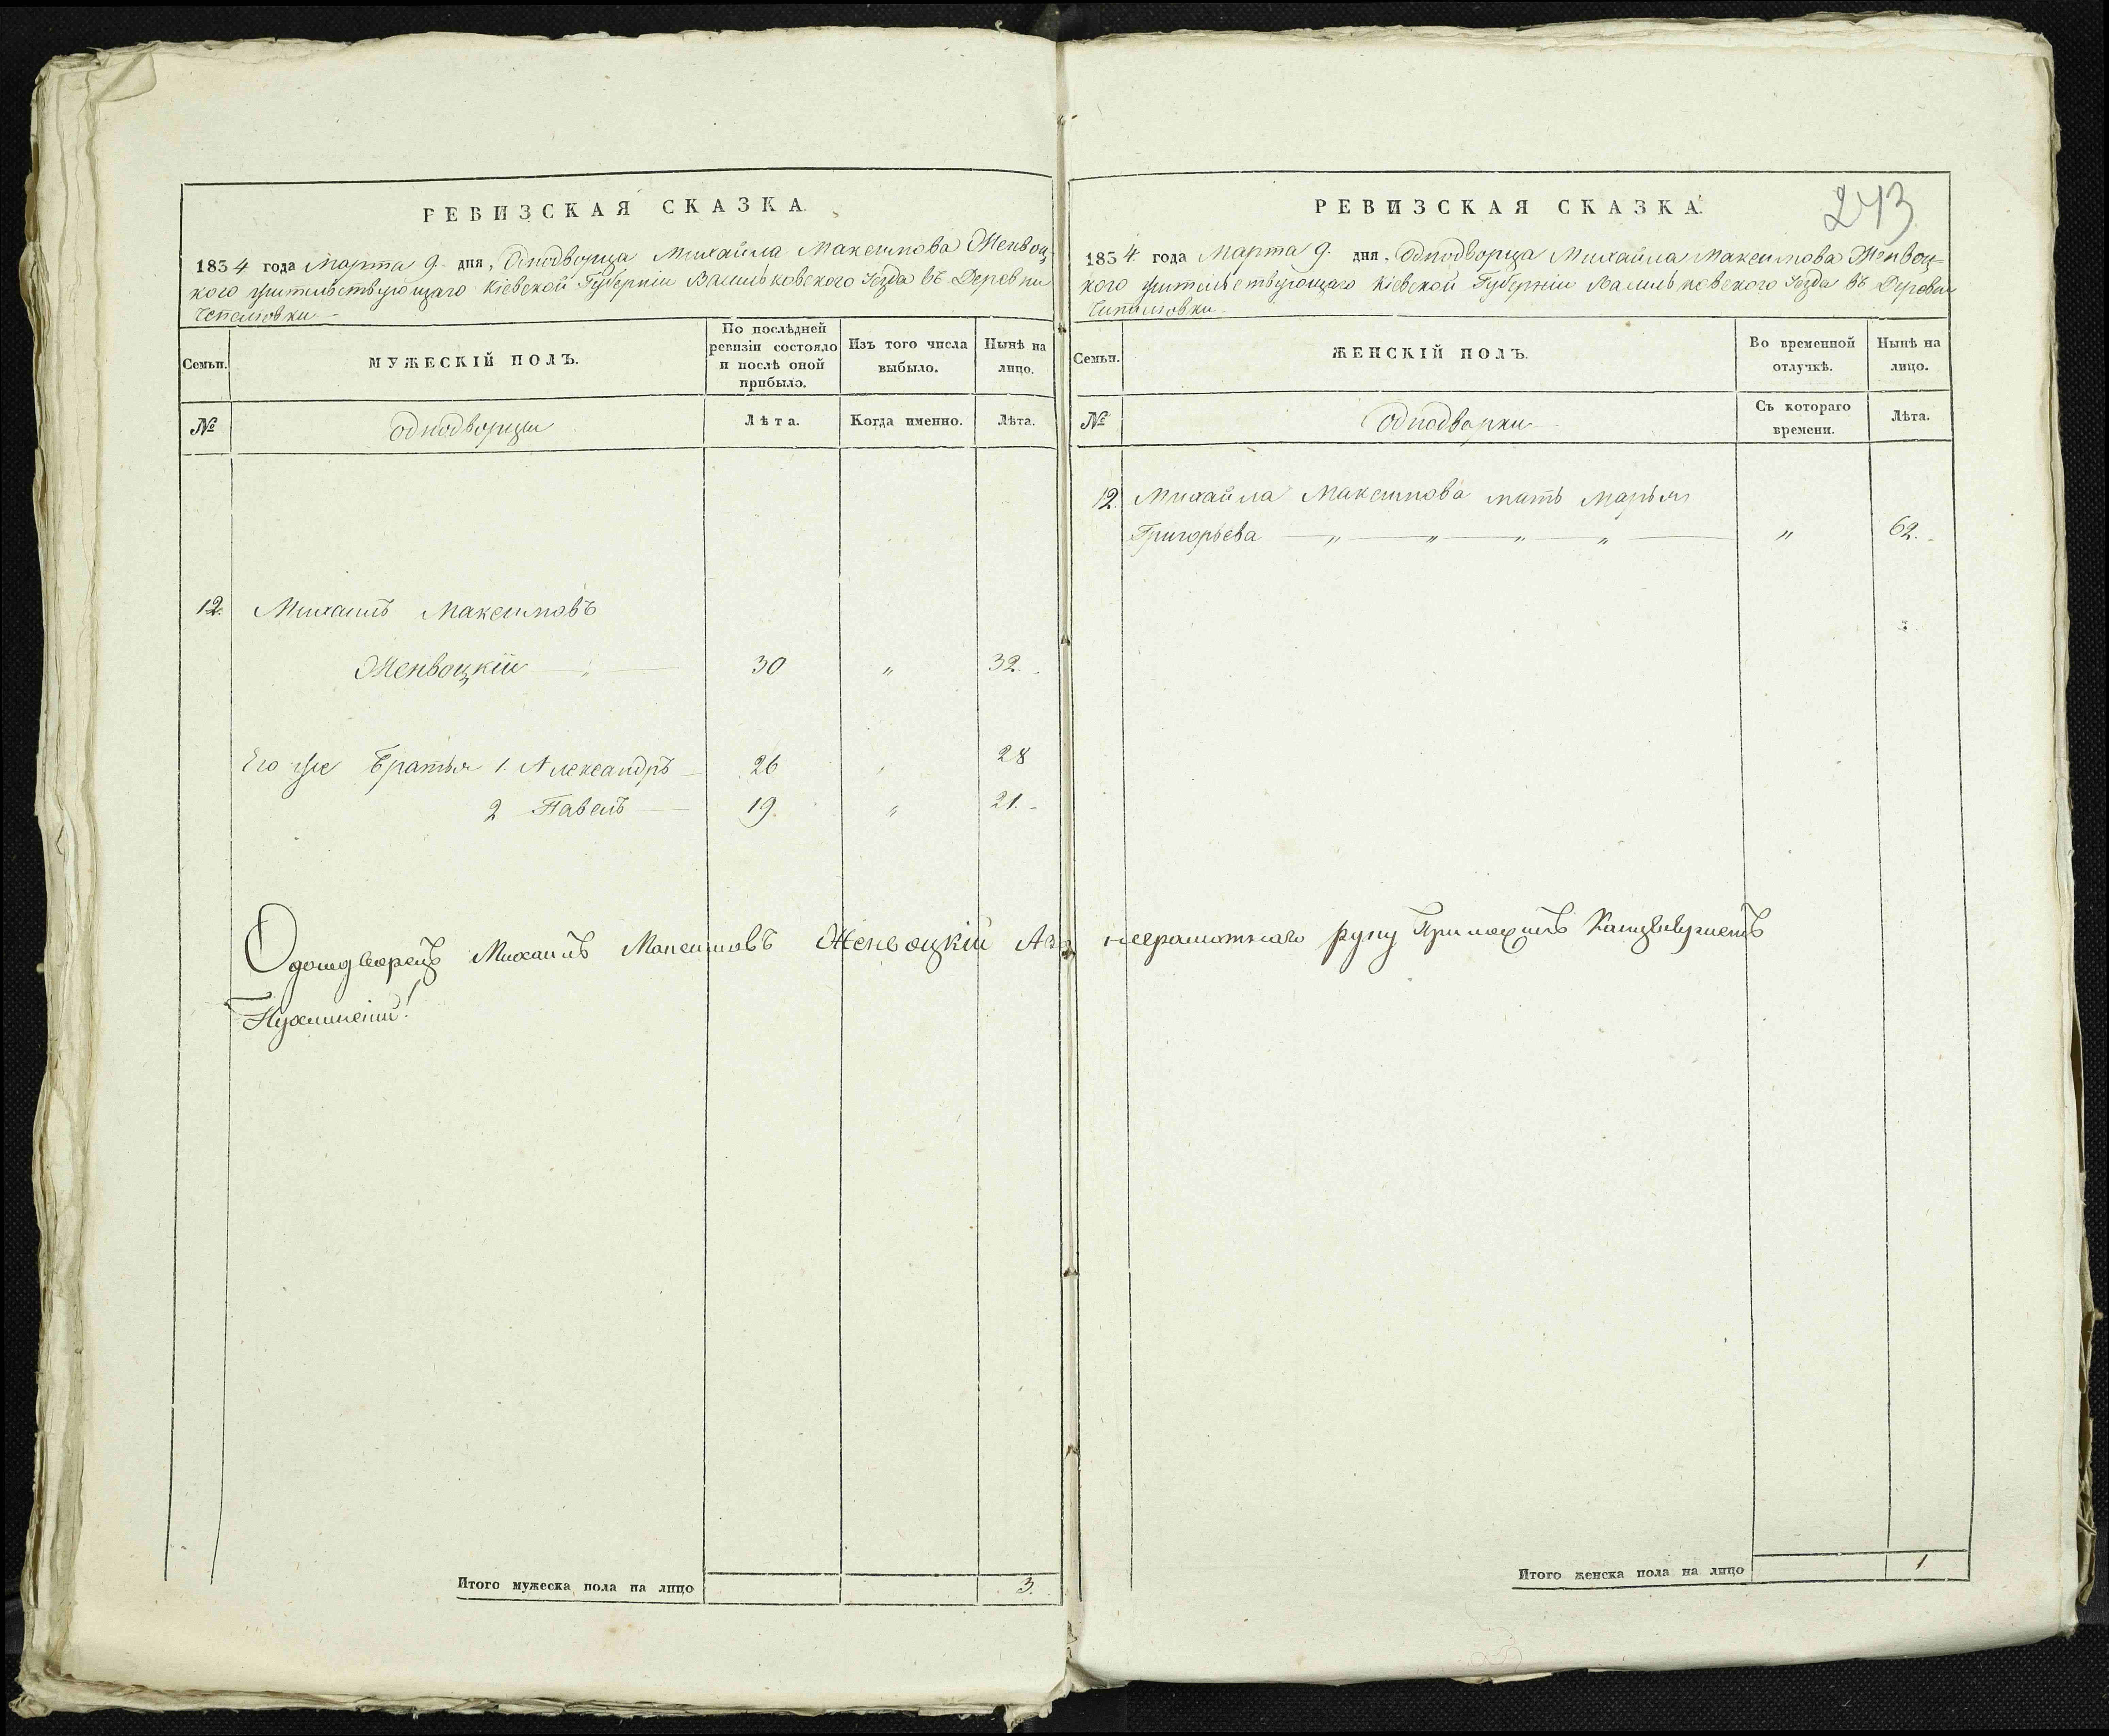 РЕВИЗСКАЯ СКАЗКА
1834 года Марта 9. дня, Однодворца Михайла Максимова Женвоц-
кого жительствующаго Кіевской Губерніи Васильковского Уезда въ Деревни
Семьи.
МУЖЕСКІЙ ПОЛЪ.
По послѣдней ревизіи состояло и послѣ оной прибыло.
Изъ того числа выбыло.
Нынѣ на лицо.
№
однодворцы
Лѣта.
Когда именно.
Лѣта.
12. Михаилъ Максимовъ
Женвоцкій 30 " 32.
Его же Братья 1. Александръ 26 " 28
2 Павелъ 19. " 21.
Однодворецъ Михаилъ Максимовъ Женвоцкій А за неграмотнаго руку Приложилъ Канцеляристъ
Итого мужеска пола на лицо 3.
243
РЕВИЗСКАЯ СКАЗКА.
1834 года Марта 9. дня, Однодворца Михайла Максимова Женвоц-
кого жительствующаго Кіевской Губерніи Васильковского Уезда въ Деревни
Семьи.
ЖЕНСКІЙ ПОЛЪ.
Во временной отлучкѣ.
Нынѣ на лицо.
№
однодворки
Съ котораго времени.
Лѣта.
12. Михайла Максимова мать Марья
Григорьева " " " " " 62.
Итого женска пола на лицо 1.